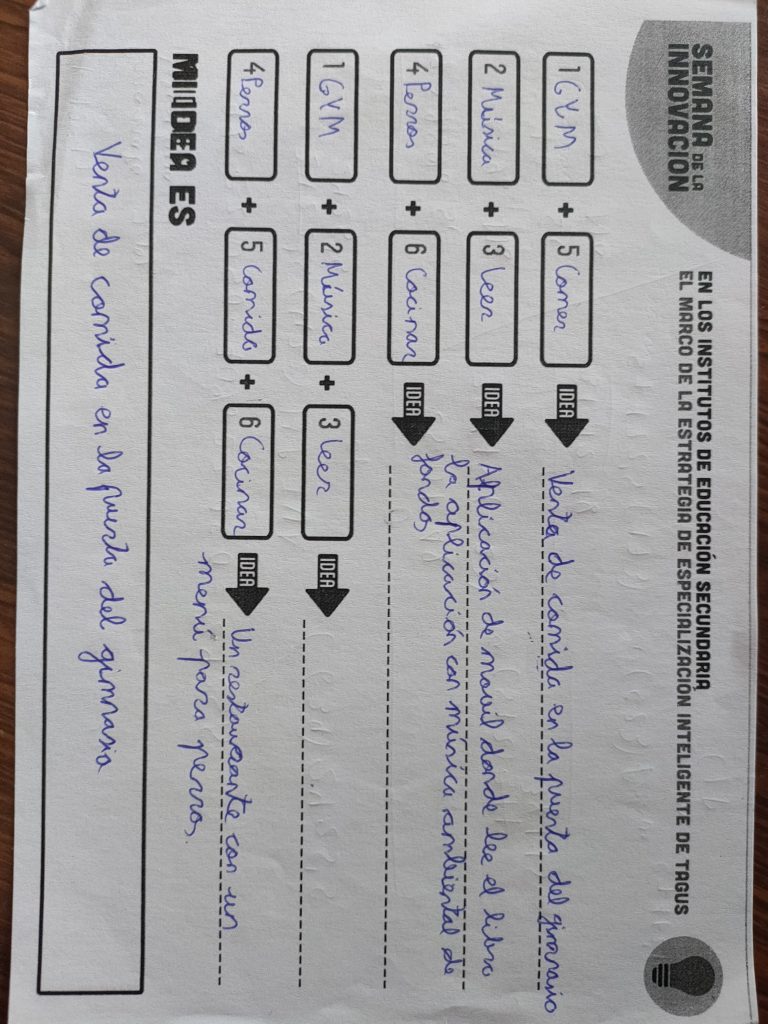 SEMANA DE LA
INNOVACIÓN
EN LOS INSTITUTOS DE EDUCACIÓN SECUNDARIA
EL MARCO DE LA ESTRATEGIA DE ESPECIALIZACIÓN INTELIGENTE DE TAGUS
1 GYM + 5 Comer IDEA Venta de comida en la puerta del gimnasio
2 Música + 3 Leer IDEA Aplicación de movil donde lee el libro
la aplicación con música ambiental de
fondo,
4 Perros + 6 Cocinar IDEA
1 GYM + 2 Música + 3 Leer IDEA
4 Perros + 5 Comida + 6 Cocinar IDEA Un restaurante con un
menú para perros.
MI IDEA ES
Venta de comida en la puerta del gimnasio